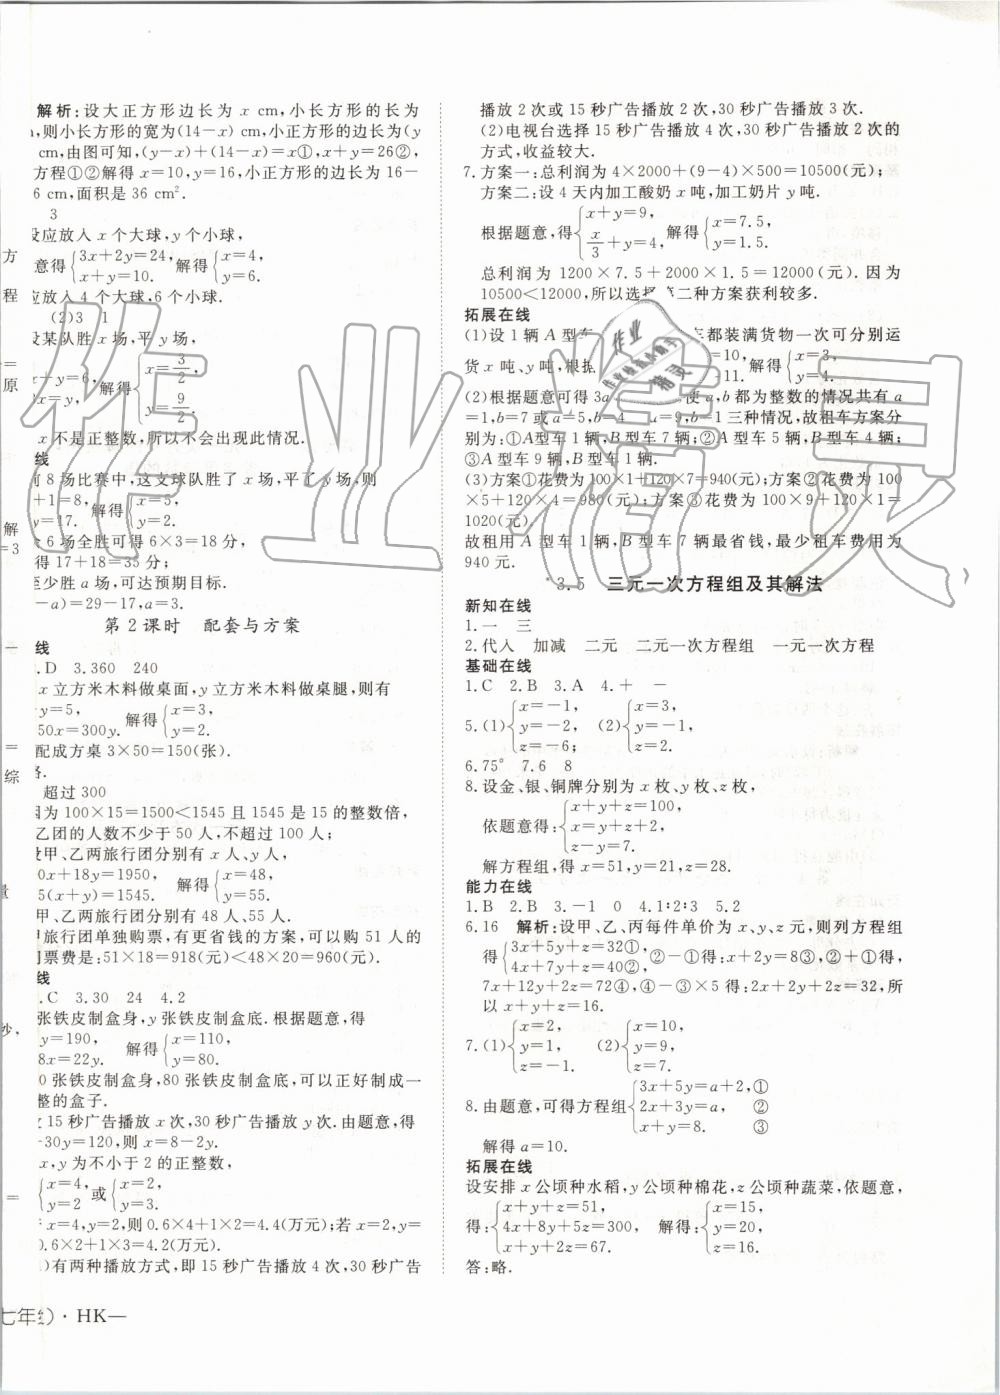 解析:设大正方形边长为 x cm,小长方形的长为
,则小长方形的宽为(14－x) cm,小正方形的边长为(y
cm,由图可知,(y－x)+(14－x)=x①,x+y=26②,
方程①②解得 x=10,y=16,小正方形的边长为 16－
6 cm,面积是 36 cm².
3
设应放入 x 个大球,y 个小球,
意得{3x+2y=24, x+y=10. 解得{x=4, y=6.
应放入 4 个大球,6 个小球.
(2)3 1
设某队胜 x 场,平 y 场,
x+y=6, x=y, 解得{x=3/2, y=9/2.
x 不是正整数,所以不会出现此情况.
线
前 8 场比赛中,这支球队胜了 x 场,平了 y 场,则
+1=8, y=17. 解得{x=5, y=2.
6 场全胜可得 6×3=18 分,
得 17+18=35 分;
至少胜 a 场,可达预期目标.
－a)=29－17,a=3.
第 2 课时 配套与方案
线
.D 3.360 240
x 立方米木料做桌面,y 立方米木料做桌腿,则有
y=5, 50x=300y. 解得{x=3, y=2.
配成方桌 3×50=150(张).
略.
超过 300
因为 100×15=1500<1545 且 1545 是 15 的整数倍,
乙团的人数不少于 50 人,不超过 100 人;
设甲、乙两旅行团分别有 x 人、y 人,
0x+18y=1950, 5(x+y)=1545. 解得{x=48, y=55.
甲、乙两旅行团分别有 48 人、55 人.
甲旅行团单独购票,有更省钱的方案,可以购 51 人的
票费是:51×18=918(元)<48×20=960(元).
线
.C 3.30 24 4.2
张铁皮制盒身,y 张铁皮制盒底.根据题意,得
y=190, 8x=22y. 解得{x=110, y=80.
0 张铁皮制盒身,80 张铁皮制盒底,可以正好制成一
整的盒子.
15 秒广告播放 x 次,30 秒广告播放 y 次.由题意,得
+30y=120,则 x=8－2y.
x,y 为不小于 2 的正整数,
{x=4, y=2 或{x=2, y=3.
x=4,y=2,则 0.6×4+1×2=4.4(万元);若 x=2,y=
0.6×2+1×3=4.2(万元).
)有两种播放方式,即 15 秒广告播放 4 次,30 秒广告
七年级)·HK—
播放 2 次或 15 秒广告播放 2 次,30 秒广告播放 3 次.
(2)电视台选择 15 秒广告播放 4 次,30 秒广告播放 2 次的
方式,收益较大.
7.方案一:总利润为 4×2000+(9－4)×500=10500(元);
方案二:设 4 天内加工酸奶 x 吨,加工奶片 y 吨.
根据题意,得{x+y=9, x/3+y=4, 解得{x=7.5, y=1.5.
总利润为 1200×7.5+2000×1.5=12000(元). 因为
10500<12000,所以选择第二种方案获利较多.
拓展在线
(1)设 1 辆 A 型车 车都装满货物一次可分别运
货 x 吨、y 吨,根据 =10, 11. 解得{x=3, y=4.
(2)根据题意可得 3a 使 a,b 都为整数的情况共有 a
=1,b=7 或 a=5,b=4 =9,b=1 三种情况,故租车方案分
别为:①A型车 1 辆,B型车 7 辆;②A型车 5 辆,B型车 4 辆;
③A型车 9 辆,B型车 1 辆.
(3)方案①花费为 100×1+120×7=940(元);方案②花费为 100
×5+120×4=980(元);方案③花费为 100×9+120×1=
1020(元).
故租用 A 型车 1 辆,B 型车 7 辆最省钱,最少租车费用为
940 元.
*3.5 三元一次方程组及其解法
新知在线
1.一 三
2.代入 加减 二元 二元一次方程组 一元一次方程
基础在线
1.C 2.B 3.A 4.+ －
5.(1){x=－1, y=－2, z=－6; (2){x=3, y=－1, z=2.
6.75° 7.6 8
8.设金、银、铜牌分别为 x 枚、y 枚、z 枚,
依题意得:{x+y+z=100, x=y+z+2, z－y=7.
解方程组,得 x=51,y=21,z=28.
能力在线
1.B 2.B 3.－1 0 4.1∶2∶3 5.2
6.16 解析:设甲、乙、丙每件单价为 x、y、z 元,则列方程组
得{3x+5y+z=32①, 4x+7y+z=40②, ②－①得:x+2y=8③,②+①得,
7x+12y+2z=72④,④－③×5 得:2x+2y+2z=32,所
以 x+y+z=16.
7.(1){x=2, y=1, z=－1. (2){x=2, y=9, z=7.
8.由题意,可得方程组{3x+5y=a+2,① 2x+3y=a, ② x+y=8. ③
解得 a=10.
拓展在线
设安排 x 公顷种水稻,y 公顷种棉花,z 公顷种蔬菜,依题意,
得:{x+y+z=51, 4x+8y+5z=300, x+y+2z=67. 解得:{x=15, y=20, z=16.
答:略.